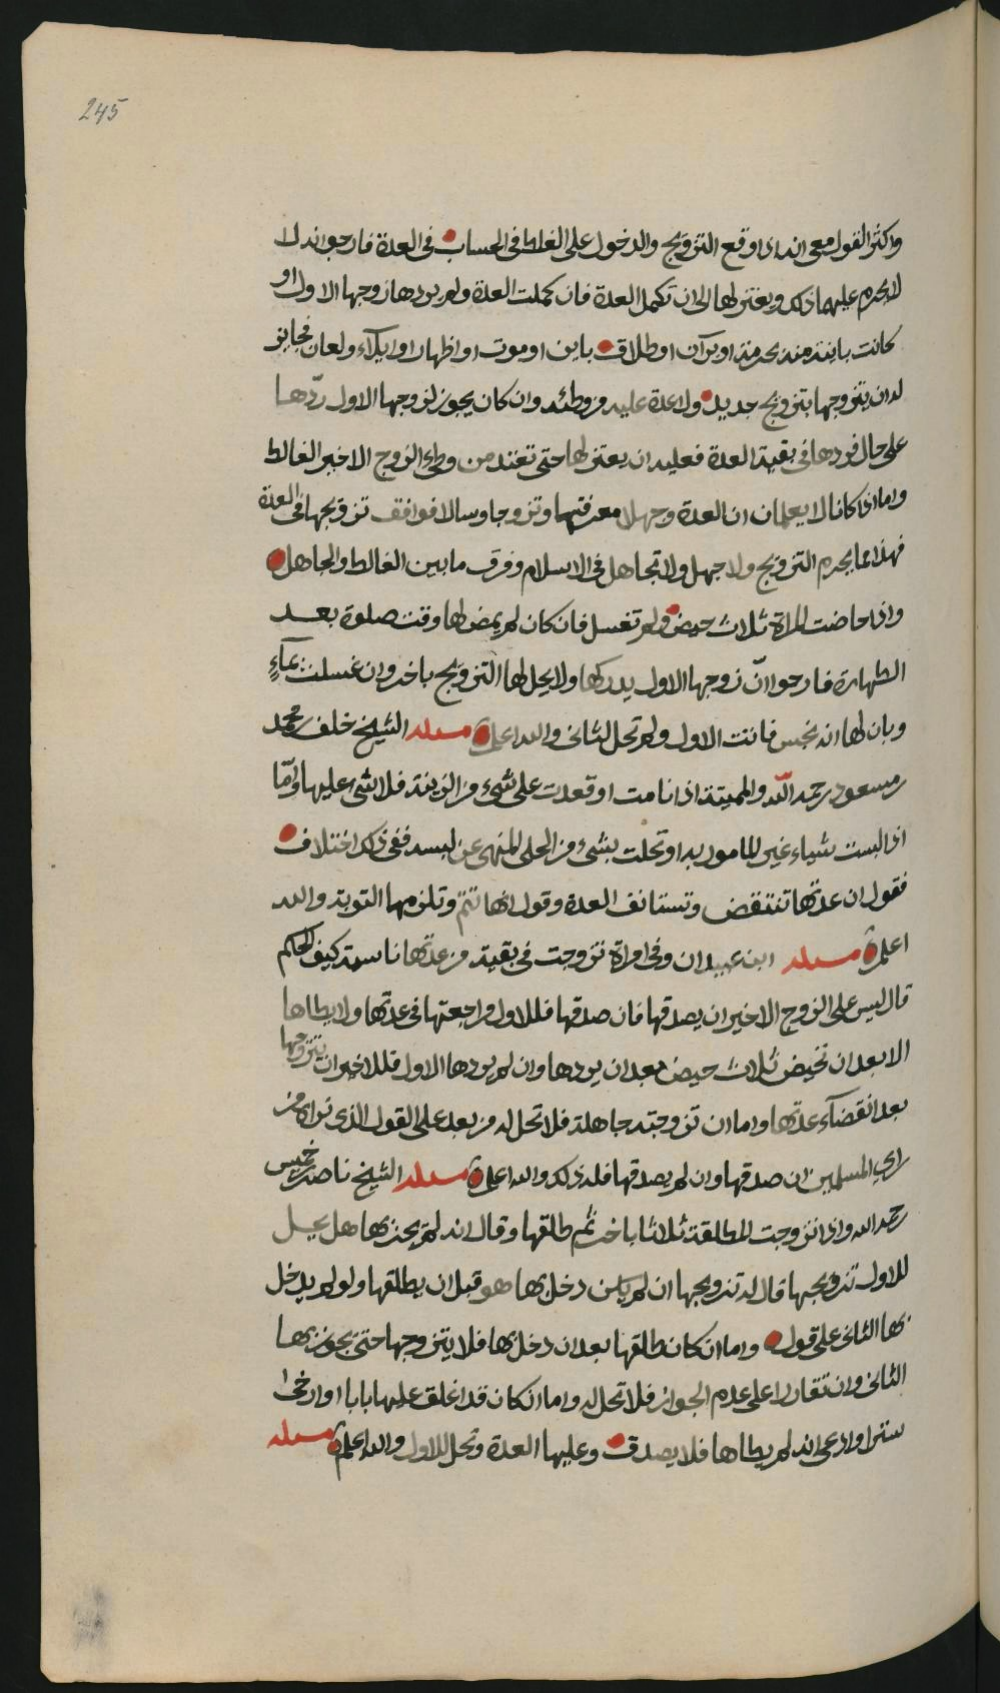 245
واكثر القول معي انه اذا وقع التزويج والدخول على الغلط في الحساب في العدة فارجوا انه لا
لا يحرم عليهما ذلك ويعتزلها الى ان تكمل العدة فان كملت العدة ولم يردها زوجها الاول او
كانت باينة منه بحرمة او برآن او طلاق باين او موت او اظهار او ايلآء ولعان فجايز
له ان يتزوجها بتزويج جديد ولا عدة عليه من وطئه وان كان يجوز لزوجها الاول ردّها
على حال فردها في بقية العدة فعليه ان يعتزلها حتى تعتد من وطء الزوج الاخير الغالط
واما اذا كانا لا يعلمان ان العدة وجهلا معرفتها وتزوجا وسالا فوافق تزويجها في العدة
فهذا مما يحرم التزويج ولا جهل ولا تجاهل في الاسلام وفرق ما بين الغالط والجاهل
واذا حاضت المراة ثلاث حيض ولم تغسل فان كان لم يمض لها وقت صلوة بعد
الطهارة فارجوا انّ زوجها الاول يدركها ولا يحل لها التزويج باخر وان غسلت بمآءٍ
وبان لها انه نجس فاتت الاول ولم تحل للثاني والله اعلم مسئلة الشيخ خلف بن محمد
بن مسعود رحمه اللّه والمميتة اذا نامت او قعدت على شيء من الزينة فلا شئ عليها وامّا
اذا لبست شياء غير المامور به او تحلت بشئ من الحلى المنهى عن لبسه ففي ذلك اختلاف
فقول ان عدتها تنتقض وتستانف العدة وقول انها تتمّ وتلزمها التوبة والله
اعلم مسئلة ابن عبيدان وفي امراة تزوجت في بقية من عدتها ناسية كيف الحكم
قال ليس على الزوج الاخير ان يصدقها فان صدقها فللاول مراجعتها في عدتها ولا يطاها
الا بعد ان تحيض ثلاث حيض بعد ان يردها وان لم يردها الاول فللاخير ان يتزوجها
بعد انقضآء عدتها واما ان تزوجته جاهلة فلا تحل له من بعد على القول الذي نراه من
راي المسلمين ان صدقها وان لم يصدقها فله ذلك والله اعلم مسئلة الشيخ ناصر بن خميس
رحمه الله واذا تزوجت المطلقة ثلاثا باخر ثم طلقها وقال انه لم يجز بها هل يحل
للاول تزويجها قال له تزويجها ان لم يكن دخل بها هو قبل ان يطلقها ولو لم يدخل
بها الثاني على قول واما ان كان طلقها بعد ان دخل بها فلا يتزوجها حتى يجوز بها
الثاني وان تقاررا على عدم الجواز فلا تحل له واما ان كان قد اغلق عليها بابا او ارخى
سترا وادعى انه لم يطاها فلا يصدق وعليها العدة وتحل للاول والله اعلم مسئلة